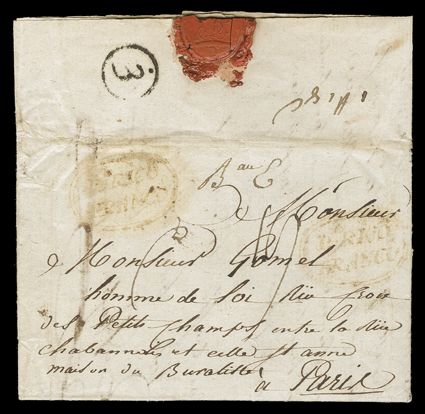 3
Bau C
A Monsieur
A Monsieur Gomel
homme de loi Rüe croix
des Petits champs entre la Rüe
chabannais et celle st anne
maison du Buraliste
a Paris
FRANCO